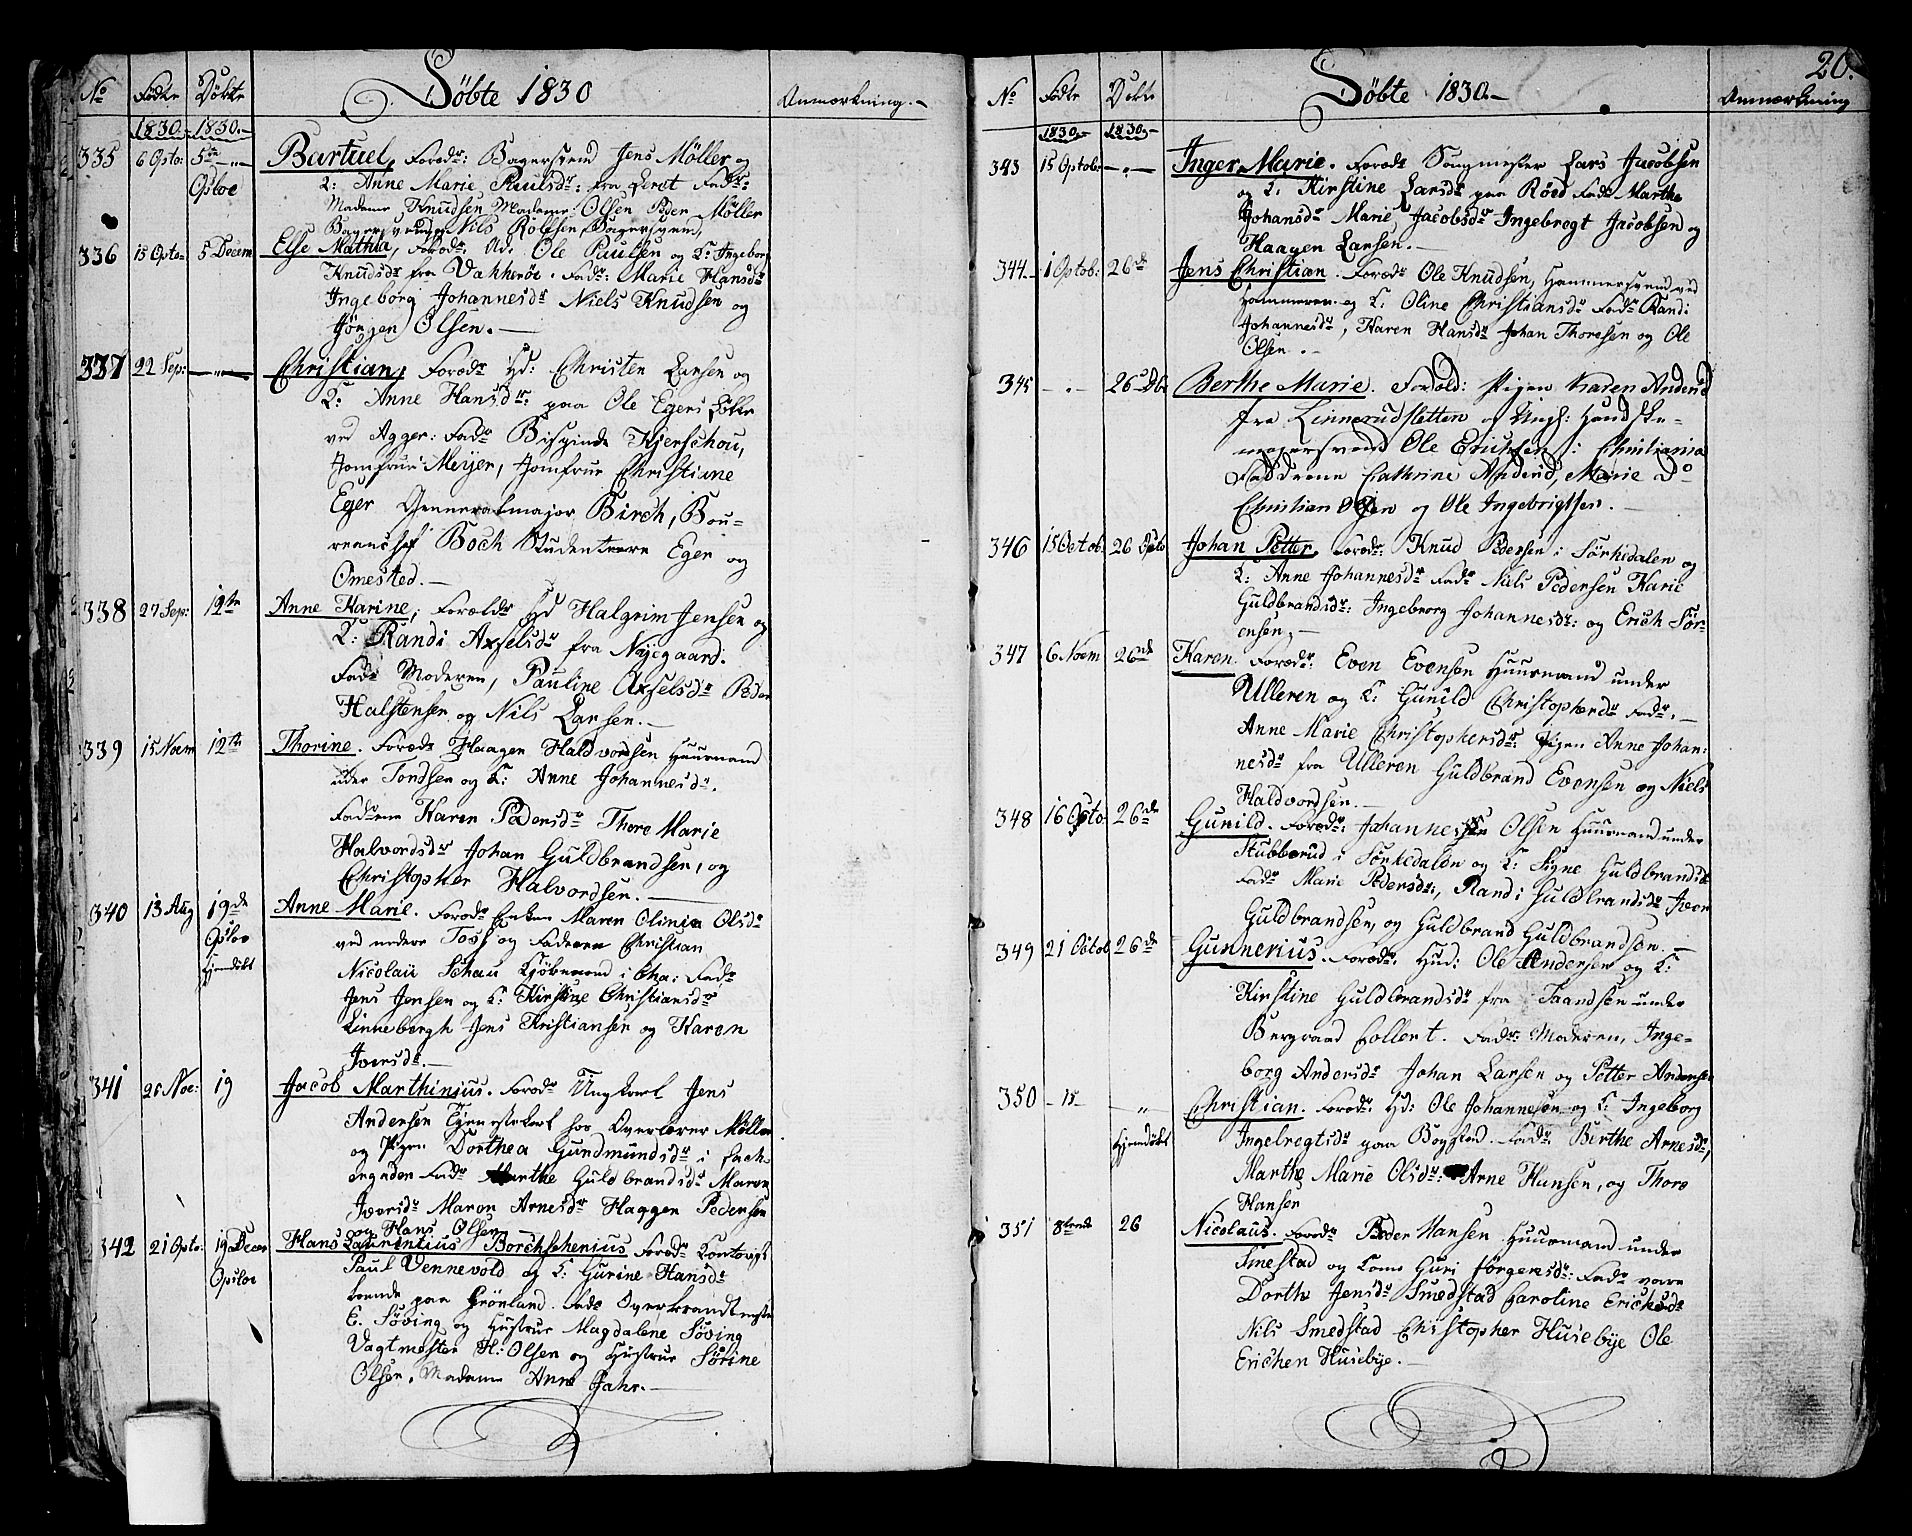 No Fødte Døbte Döbte 1830 Anmærkning.
1830 1830
335 6 Octo: 5te Bartuel, Foræd: Bagersvend Jens Möller og
Opsloe K: Anne Marie Paulsdr: fra Leret Fadr
Madame Knudsen Madame Olsen Peder Möller
Bagersvend Nils Rolfsen, Bagersvend,
336 15 Octo 5 Decem Else Mathia, Forædr Ole Paulsen og K: Ingeborg
Knudsdr fra Vakkeröe. Fadr: Marie Hansdr
Ingeborg Johannesdr Niels Knudsen og
Jörgen Olsen.
337 22 Sep: — " — Christian, Forædr Hd: Christen Larsen og
K: Anne Hansdr: paa Ole Egers Lökke
ved Agger: Fadr Bispinde Kjerschou,
Jomfrue Meyer, Jomfrue Christiane
Eger Generalmajor Birch, Bou-
reauchef Boch Studenterne Eger og
Omested.
338 27 Sep: 12te Anne Karine, Forældr Hd Halgrim Jensen og
K: Randi Axselsdr fra Nyegaard.
Fadr Moderen, Pauline Axselsdr Peder
Halstensen og Nils Larsen.
339 15 Novm 12te Thorine. Forædr Haagen Haldvordsen Huusmand
under Tondsen og K: Anne Johannesdr.
Fadrne Karen Pedersdr Thore Marie
Halvordsdr Johan Guldbrandsen, og
Christopher Halvordsen.
340 13 Aug 19de Anne Marie. Forædr Enken Maren Olinia Olsdr
Opsloe ved nedere Foss og Faderen Christian
Hjemdøbt Nicolaü Schau Kjöbmand i Cha: Fadr
Jens Jensen og K: Kirstine Christiansdr
Linnebergh Jens Kristiansen og Karen
Iversdr.
341 26 Nov: 19 Jacob Marthinius. Forædr Ungkarl Jens
Andersen Tjenestekarl hos Overlærer Möller
og Pigen Dorthea Gundmundsdr i Jach-
ergaden Fadr Marthe Guldbrandsdr Maren
Iversdr Maren Arnesdr Haagen Pedersen
og Hans Olsen
342 21 Octo: 19 Decem Hans Laurentius Borchsehenius Forædr Contorist
Opsloe Paul Vennevold og K: Gurine Hansdr
boende paa Grönland. Fadr Overkrandtmester
E. Söving og Hustrue Magdalene Söving
Vagtmester H: Olsen og Hustrue Sörine
Olsen. Madame Anne Jahr.
20.
No Fødte Døbte Döbte 1830. Anmærkning
1830 1830
343 15 Octob: — " — Inger Marie. Forædr Saugmester Lars Jacobsen
og K: Kirstine Larsdr paa Röed Fadr Marthe
Johansdr Marie Jacobsdr Ingebregt Jacobsen og
Haagen Larsen.
344 1 Octob: 26de Jens Christian. Forædr Ole Knudsen, Hammersvend ved
Hammeren og K: Oline Christiansdr Fadr Randi
Johannesdr, Karen Hansdr Johan Thoresen og Ole
Olsen.
345 — 26 Dbr Berthe Marie. Foræld: Pigen Karen Andersd
fra Linnerudsletten og Ungk: Handske-
magersvend Ole Erichsen i Christiania
Faddrene Cathrine Andersd, Marie do
Christian Olsen og Ole Ingebrigtsen.
346 15 Octob. 26 Octo Johan Petter, Forædr: Knud Pedersen i Sörkedalen og
K: Anne Johannesdr Fadr Nils Pedersen Karie
Guldbrandsdr: Ingeborg Johannesdr: og Erich Sör-
ensen,
347 6 Novm 26de Karen. Forædr: Even Evensen Huusmand under
Ulleren og K: Gunild Christophersdr Fadr.
Anne Marie Christophersdr: Pigen Anne Johan:
nesdr fra Ulleren Guldbrand Evensen og Niels
Haldvordsen.
348 16 Octo 26de Gunild. Forædr: Johannes Olsen Huusmand under
Stubberud i Sörkedalen og K: Signe Guldbrandsdr
Fadr Marie Pedersdr:, Randi Guldbrandsdr Iver
Guldbrandsen, og Guldbrand Guldbrandsen.
349 21 Octob 26de Gunnerius. Forædr. Hud: Ole Andersen og K:
Kirstine Guldbrandsdr fra Taandsen under
Bergraad Collert. Fadr: Moderen, Inge-
borg Andersdr Johan Larsen og Petter Andersen
350 — 15 — " Christian. Forædr. Hd: Ole Johannesen og K: Ingeborg
Hjemdøbt Ingebregtsdr paa Bogstad. Fadr: Berthe Arnesdr,
Marthe Marie Olsdr: Arne Hansen, og Thore
Hansen
351 8tende 26 Nicolaüs. Forædr Peder Hansen. Huusmand under
Smestad og Kone Guri Jörgensdr: Fadr vare
Dorthe Jensdr Smedstad Caroline Erichsdr
Nils Smedstad Christopher Husebye Ole
Erichen Husebye.